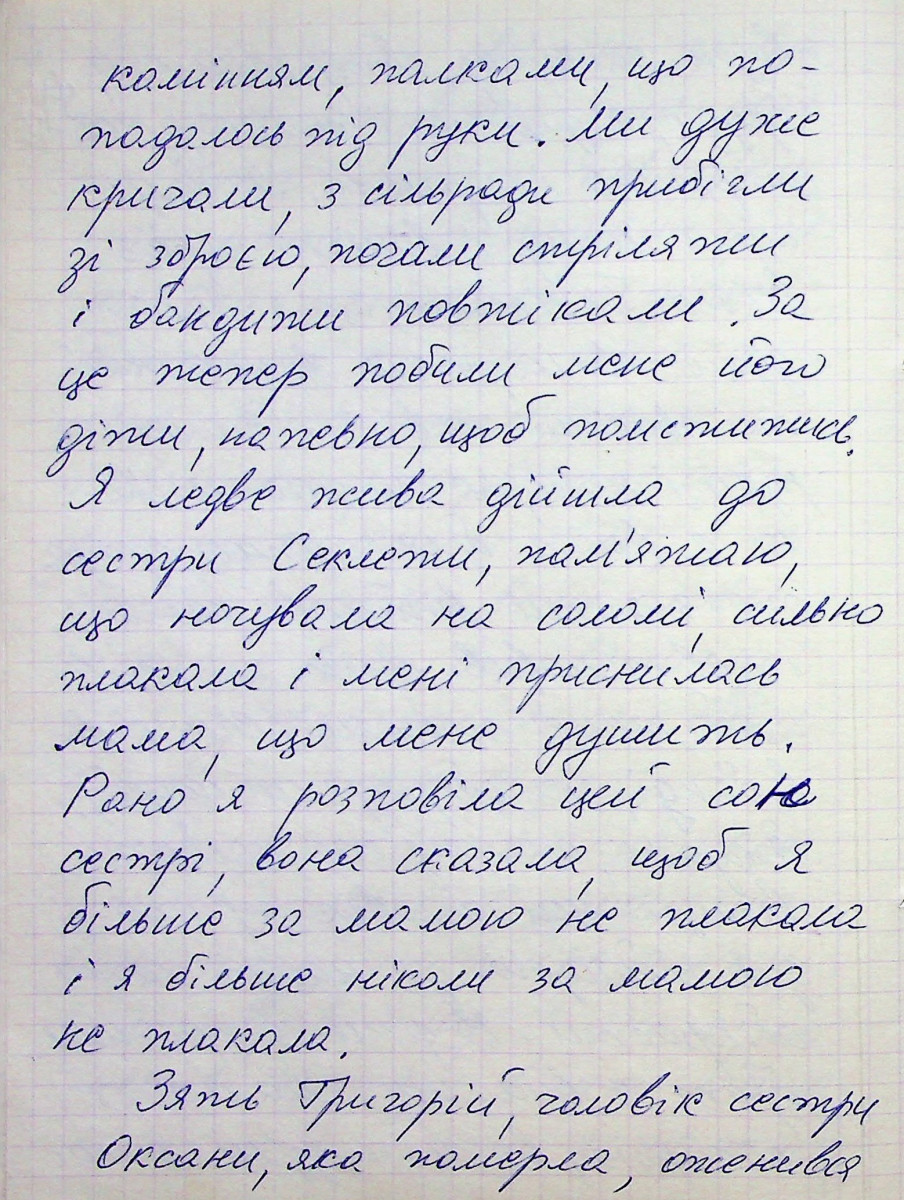 камінням, палками, що по-
падалось під руки. Ми дуже
кричали, з сільради прибігли
зі зброєю, почали стріляти
і бандити повтікали. За
це тепер побили мене його
діти, напевно, щоб помститись.
Я ледве жива дійшла до
сестри Секлети, пам'ятаю,
що ночувала на соломі, сильно
плакала і мені приснилась
мама, що мене душить.
Рано я розповіла цей сон
сестрі, вона сказала, щоб я
більше за мамою не плакала
і я більше ніколи за мамою
не плакала.
Зять Григорій, чоловік сестри
Оксани, яка померла, оженився